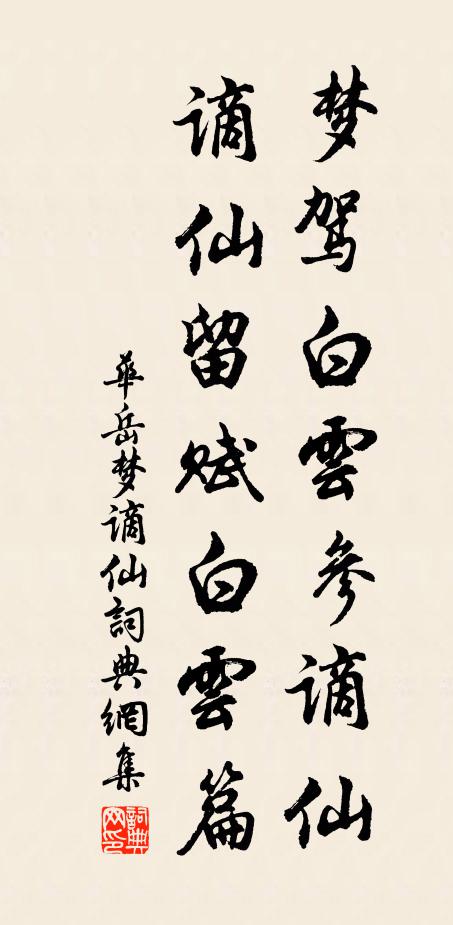 梦驾白雲參谪仙
谪仙留赋白雲篇
華岳梦谪仙詞典網集
詞典
网印